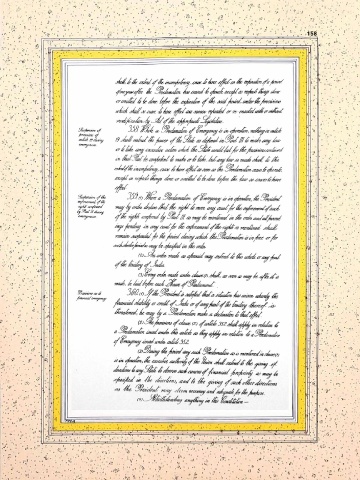 158
shall, to the extent of the incompetency, cease to have effect on the expiration of a period
of one year after the Proclamation has ceased to operate except as respects things done
or omitted to be done before the expiration of the said period, unless the provisions
which shall so cease to have effect are sooner repealed or re-enacted with or without
modification by Act of the appropriate Legislature.
Suspension of
provisions of
article 19 during
emergencies.
358. While a Proclamation of Emergency is in operation, nothing in article
19 shall restrict the power of the State as defined in Part III to make any law
or to take any executive action which the State would but for the provisions contained
in that Part be competent to make or to take, but any law so made shall, to the
extent of the incompetency, cease to have effect as soon as the Proclamation ceases to operate,
except as respects things done or omitted to be done before the law so ceases to have
effect.
Suspension of the
enforcement of the
rights conferred
by Part III during
emergencies.
359. (1) Where a Proclamation of Emergency is in operation, the President
may by order declare that the right to move any court for the enforcement of such
of the rights conferred by Part III as may be mentioned in the order and all proceed-
ings pending in any court for the enforcement of the rights so mentioned shall
remain suspended for the period during which the Proclamation is in force or for
such shorter period as may be specified in the order.
(2) An order made as aforesaid may extend to the whole or any part
of the territory of India.
(3) Every order made under clause (1) shall, as soon as may be after it is
made, be laid before each House of Parliament.
Provisions as to
financial emergency.
360. (1) If the President is satisfied that a situation has arisen whereby the
financial stability or credit of India or of any part of the territory thereof is
threatened, he may by a Proclamation make a declaration to that effect.
(2) The provisions of clause (2) of article 352 shall apply in relation to
a Proclamation issued under this article as they apply in relation to a Proclamation
of Emergency issued under article 352.
(3) During the period any such Proclamation as is mentioned in clause (1)
is in operation, the executive authority of the Union shall extend to the giving of
directions to any State to observe such canons of financial propriety as may be
specified in the directions, and to the giving of such other directions
as the President may deem necessary and adequate for the purpose.
(4) Notwithstanding anything in this Constitution—